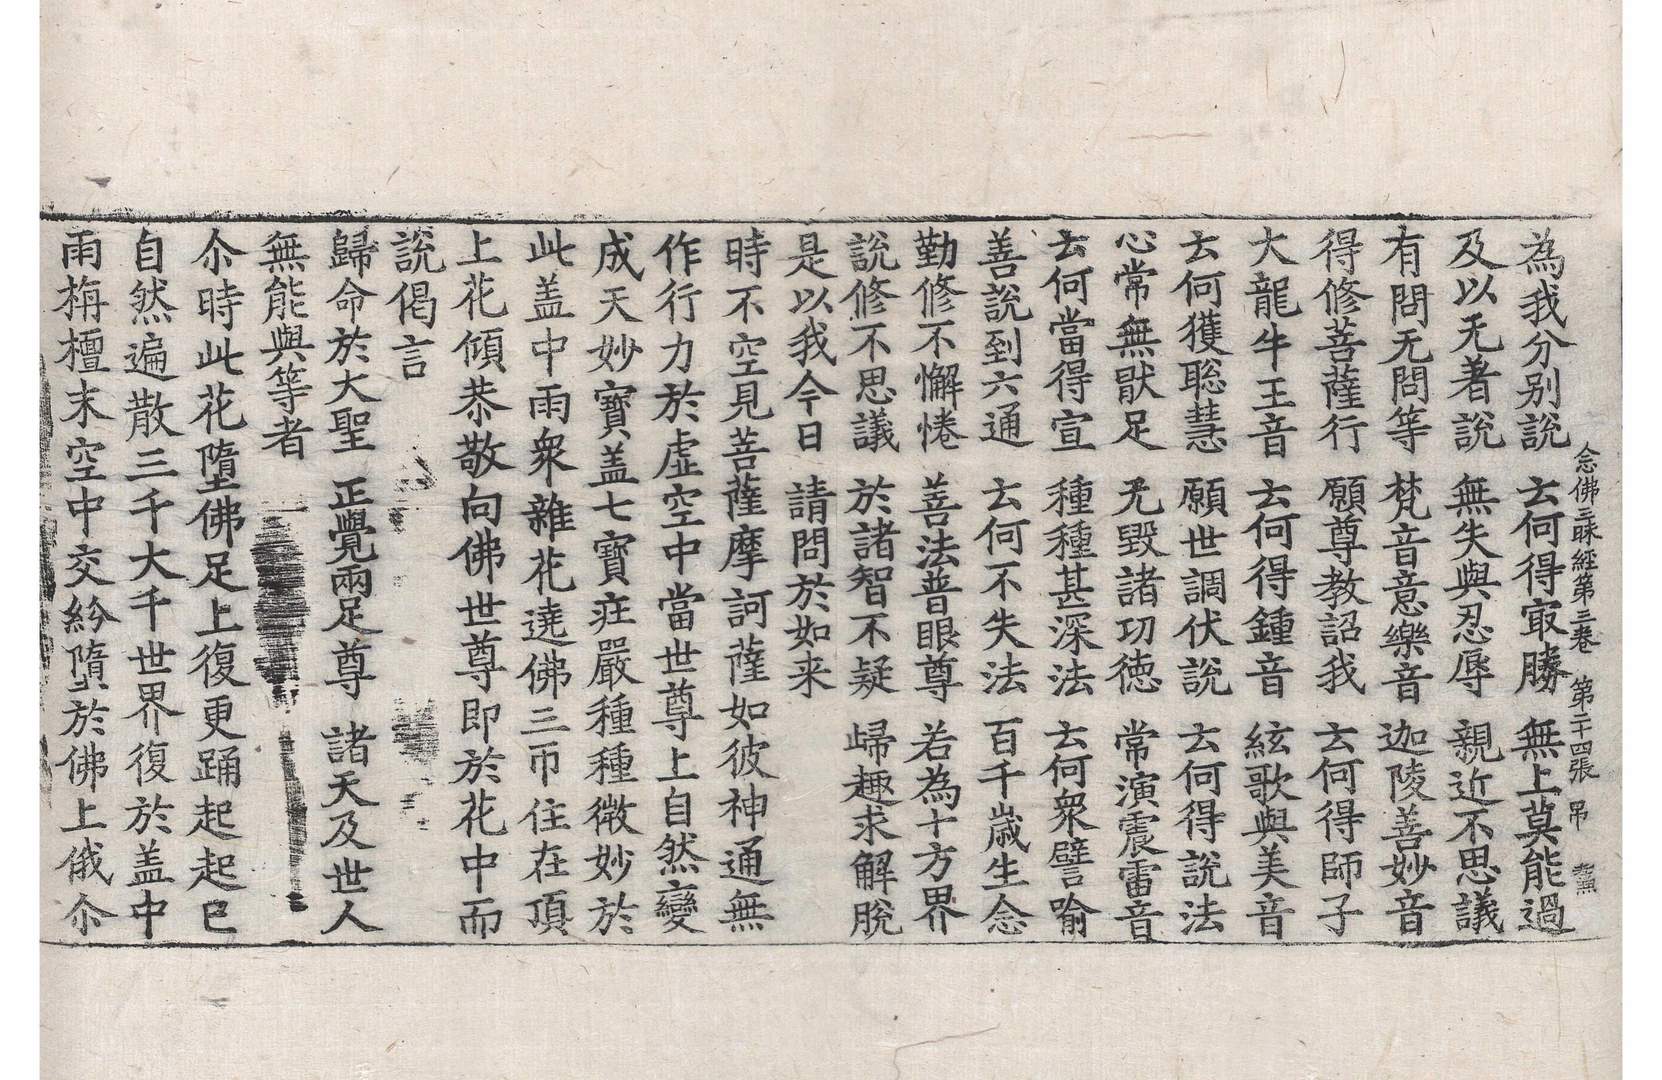 念佛三昧經第三卷 第二十四張 吊
為我分別說 去何得㝡勝 無上莫能過
及以无著說 無失與忍辱 親近不思議
有問无問等 梵音意樂音 迦陵善妙音
得修菩薩行 願尊教詔我 去何得師子
大龍牛王音 去何得鍾音 絃歌與美音
去何獲聡慧 願世調伏說 去何得說法
心常無猒足 旡毀諸功徳 常演震雷音
去何當得宣 種種甚深法 去何衆譬喻
善說到六通 去何不失法 百千歲生念
勤修不懈惓 善法普眼尊 若為十方界
說修不思議 於諸智不疑 歸趣求解脫
是以我今日 請問於如来
時不空見菩薩摩訶薩如彼神通無
作行力於虛空中當世尊上自然變
成天妙寶盖七寶疘嚴種種微妙於
此盖中雨衆雜花遶佛三帀住在頂
上花傾恭敬向佛世尊即於花中而
說偈言
歸命於大聖 正覺兩足尊 諸天及世人
無能與等者
尒時此花墮佛足上復更踊起起已
自然遍散三千大千世界復於盖中
雨栴檀末空中交紛墮於佛上俄尒